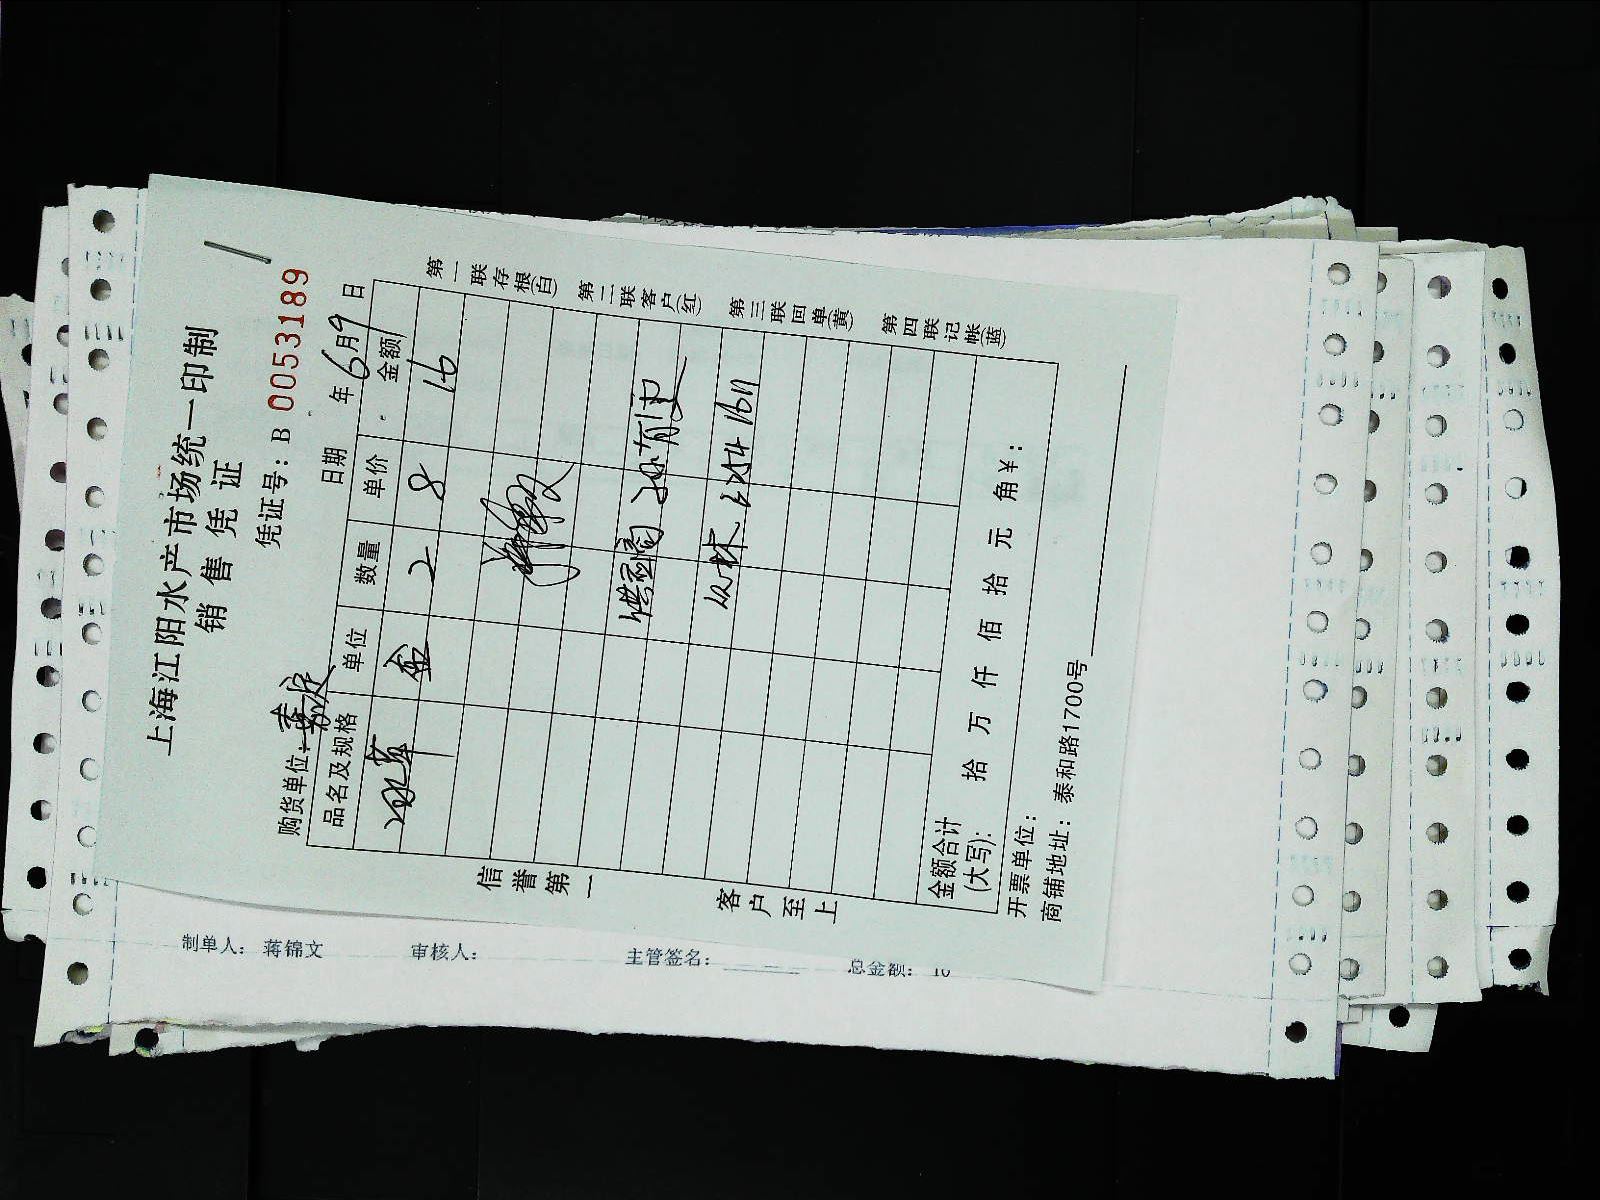 上海江阳水产市场统一印制
销售凭证
凭证号：B 0053189
购货单位： 日期 年6月9日
品名及规格 单位 数量 单价 金额
盒 2 8 16
金额合计(大写)： 拾 万 仟 佰 拾 元 角￥：
开票单位：
商铺地址：泰和路1700号
信誉第一
客户至上
第一联存根(白)
第二联客户(红)
第三联回单(黄)
第四联记帐(蓝)
制单人：蒋锦文 审核人： 主管签名： 总金额：